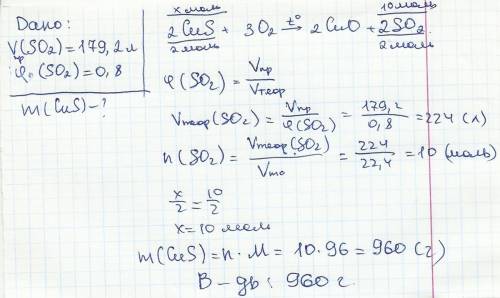 Дано:
V(SO₂)=179,2 л
φ(SO₂)=0,8
m(CuS)-?
x моль 10 моль
2CuS + 3O₂ →t° 2CuO + 2SO₂
2 моль 2 моль
φ(SO₂) = Vпр / Vтеор
Vтеор(SO₂) = Vпр / φ(SO₂) = 179,2 / 0,8 = 224 (л)
n(SO₂) = Vтеор(SO₂) / Vm = 224 / 22,4 = 10 (моль)
x/2 = 10/2
x = 10 моль
m(CuS) = n · M = 10 · 96 = 960 (г)
В-дь: 960 г.